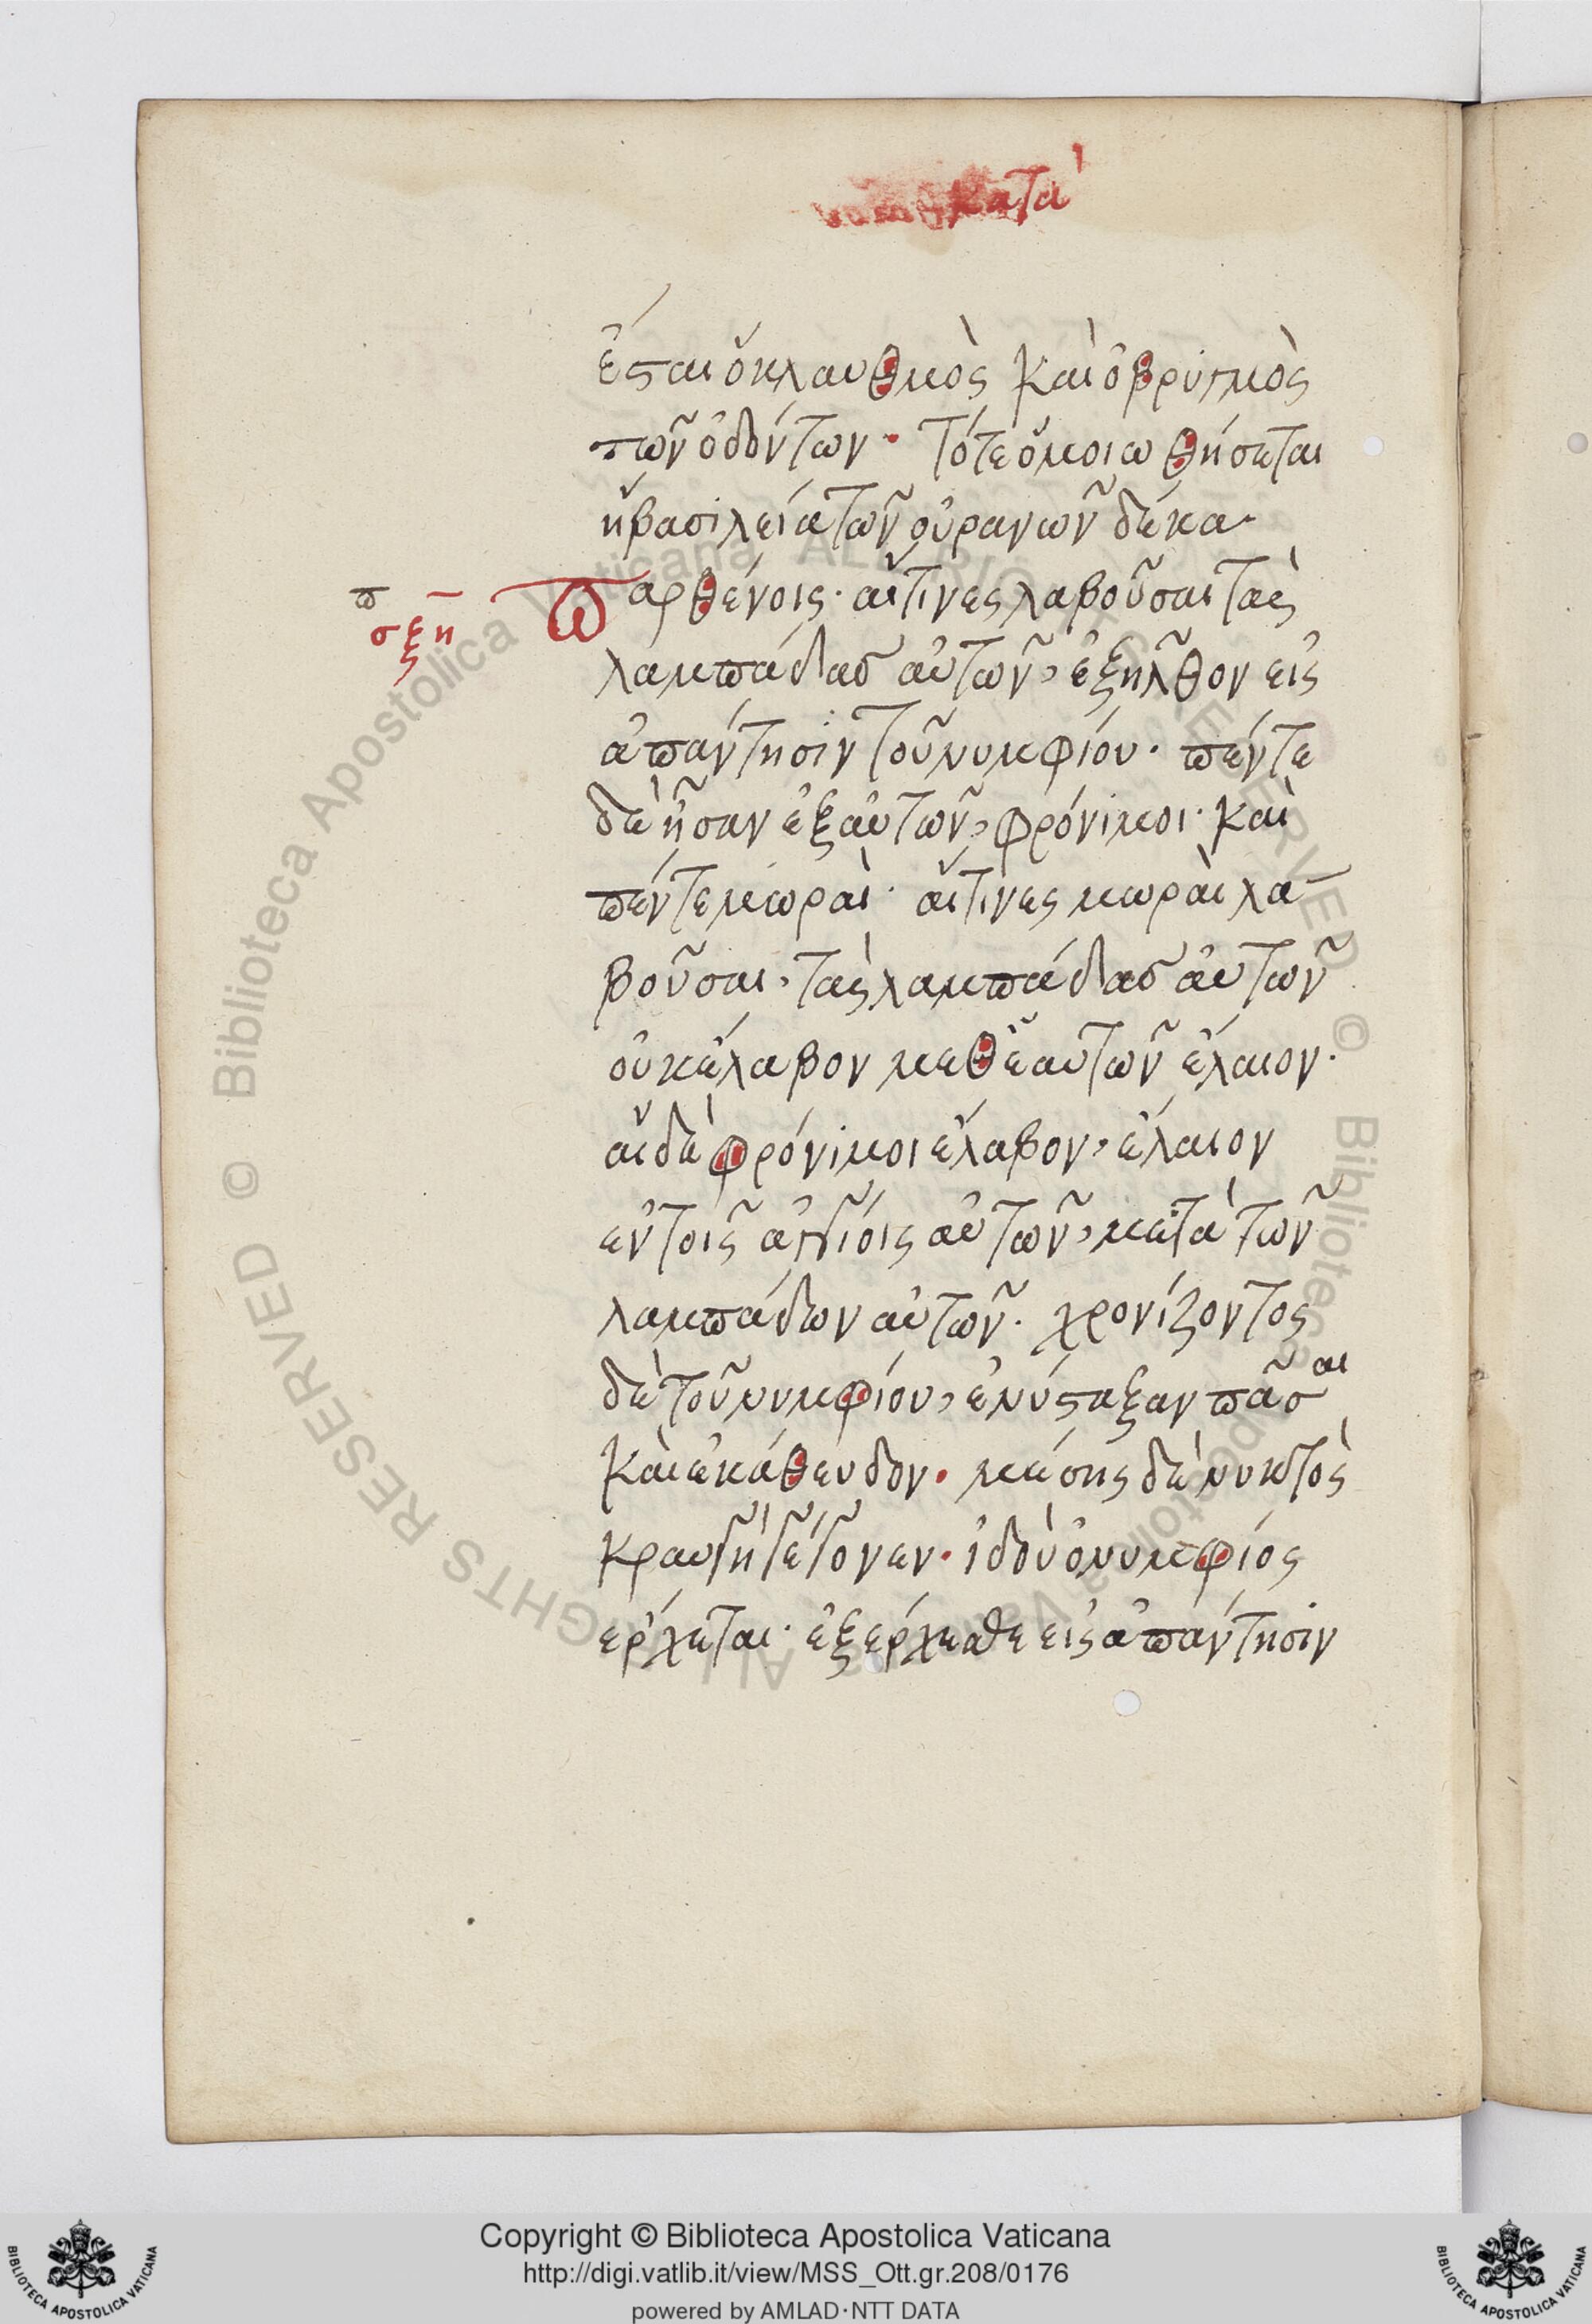 κατὰ
ἔσται ὁ κλαυθμὸς καὶ ὁ βρυγμὸς
τῶν ὀδόντων· Τότε ὁμοιωθήσεται
ἡ βασιλεία τῶν οὐρανῶν δέκα
παρθένοις· αἵτινες λαβοῦσαι τὰς
π
σξη
λαμπάδας αὐτῶν, ἐξῆλθον εἰς
ἀπάντησιν τοῦ νυμφίου· πέντε
δὲ ἦσαν ἐξ αὐτῶν, φρόνιμοι· καὶ
πέντε μωραὶ· αἵτινες μωραὶ λα
βοῦσαι, τὰς λαμπάδας αὐτῶν
οὐκ ἔλαβον μεθ ἑαυτῶν ἔλαιον·
αἱ δὲ φρόνιμοι ἔλαβον, ἔλαιον
ἐν τοῖς ἀγγίοις αὐτῶν, μετὰ τῶν
λαμπάδων αὐτῶν· χρονίζοντος
δὲ τοῦ νυμφίου, ἐνύσταξαν πᾶσαι
καὶ ἐκάθευδον· μέσης δὲ νυκτὸς
κραυγὴ γέγονεν· ἰδοὺ ὁ νυμφίος
ἔρχεται· ἐξέρχεσθε εἰς ἀπάντησιν
© Biblioteca Apostolica Vaticana ALL RIGHTS RESERVED © Biblioteca Apostolica Vaticana ALL RIGHTS RESERVED
Copyright © Biblioteca Apostolica Vaticana
http://digi.vatlib.it/view/MSS_Ott.gr.208/0176
powered by AMLAD·NTT DATA
BIBLIOTECA APOSTOLICA VATICANA
BIBLIOTECA APOSTOLICA VATICANA